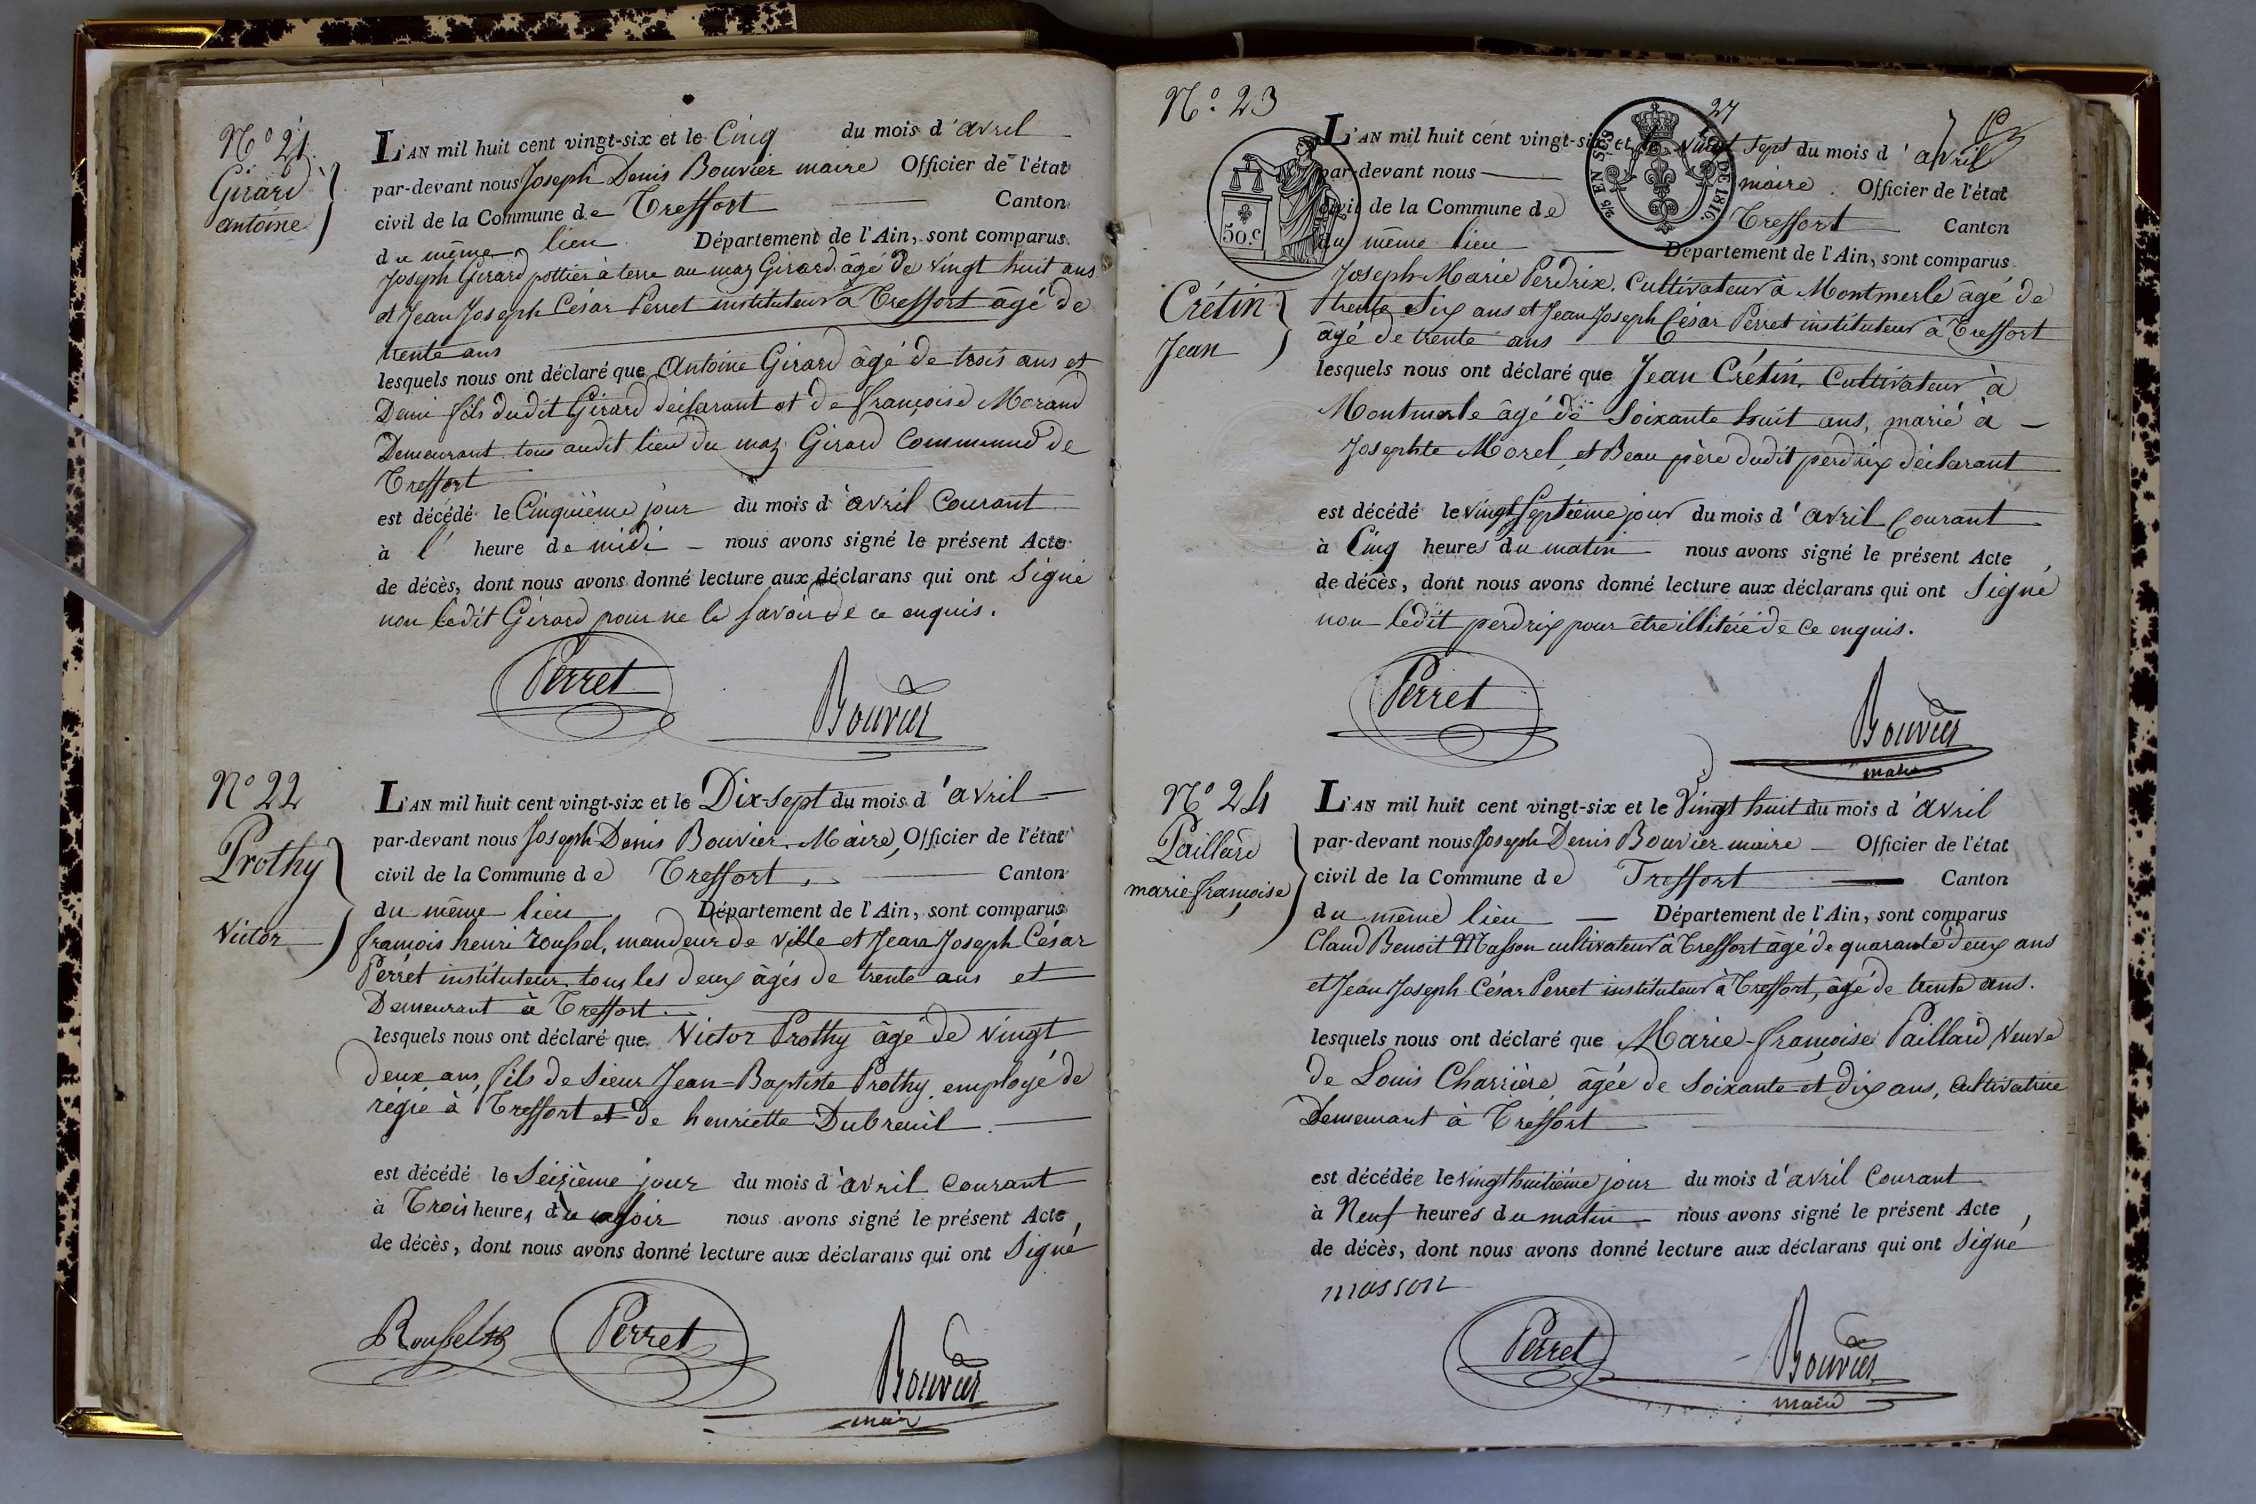 N.° 21
Girard
antoine
L'AN mil huit cent vingt-six et le Cinq du mois d'avril
par-devant nous Joseph Denis Bouvier maire Officier de l'état
civil de la Commune de Treffort Canton
du même lieu Département de l'Ain, sont comparus
Joseph Girard pottier à terre au maz Girard âgé de vingt huit ans
et Jean Joseph César Perret instituteur à Treffort âgé de
trente ans
lesquels nous ont déclaré que Antoine Girard âgé de trois ans et
Demi fils dudit Girard déclarant et de françoise Morand
Demeurant tous audit lieu du maz Girard Commune de
Treffort
est décédé le Cinquième jour du mois d'avril Courant
à l' heure de midi nous avons signé le présent Acte
de décès, dont nous avons donné lecture aux déclarans qui ont Signé
non ledit Girard pour ne le savoir de ce enquis.
Perret
Bouvier
N° 22
Prothy
Victor
L'AN mil huit cent vingt-six et le Dix-sept du mois d'avril
par-devant nous Joseph Denis Bouvier, Maire, Officier de l'état
civil de la Commune de Treffort, Canton
du même lieu Département de l'Ain, sont comparus
françois henri roussel, mandeur de ville et Jean Joseph César
Perret instituteur tous les deux âgés de trente ans et
Demeurant à Treffort.
lesquels nous ont déclaré que Victor Prothy âgé de vingt
deux ans, fils de Sieur Jean-Baptiste Prothy employé de
régie à Treffort et de henriette Dubreuil.
est décédé le Seizième jour du mois d'avril Courant
à Trois heures du soir nous avons signé le présent Acte,
de décès, dont nous avons donné lecture aux déclarans qui ont Signé
Roussel
Perret
Bouvier
maire
N.° 23
27
Crétin
Jean
50.c
EN SUS
DE 1816.
L'AN mil huit cent vingt-six et le vingt Sept du mois d'avril
par-devant nous maire Officier de l'état
civil de la Commune de Treffort Canton
du même lieu Département de l'Ain, sont comparus
Joseph-Marie Perdrix, Cultivateur à Montmerle âgé de
trente Six ans et Jean Joseph César Perret instituteur à Treffort
âgé de trente ans
lesquels nous ont déclaré que Jean Crétin, Cultivateur à
Montmerle âgé de Soixante huit ans, marié à
Josephte Morel, et Beau père dudit perdrix déclarant
est décédé le vingt Septième jour du mois d'avril Courant
à Cinq heures du matin nous avons signé le présent Acte,
de décès, dont nous avons donné lecture aux déclarans qui ont Signé
non ledit perdrix pour être illitéré de ce enquis.
Perret
Bouvier
maire
N.° 24
Paillard
marie françoise
L'AN mil huit cent vingt-six et le Vingt huit du mois d'avril
par-devant nous Joseph Denis Bouvier maire Officier de l'état
civil de la Commune de Treffort Canton
du même lieu Département de l'Ain, sont comparus
Claud Benoit Masson cultivateur à Treffort âgé de quarante deux ans
et Jean Joseph César Perret instituteur à Treffort, âgé de trente ans.
lesquels nous ont déclaré que Marie-françoise Paillard Veuve
de Louis Charrière âgée de Soixante et dix ans, cultivatrice
Demeurant à Treffort
est décédée le vingt huitième jour du mois d'avril Courant
à Neuf heures du matin nous avons signé le présent Acte,
de décès, dont nous avons donné lecture aux déclarans qui ont Signé
masson
Perret
Bouvier
maire